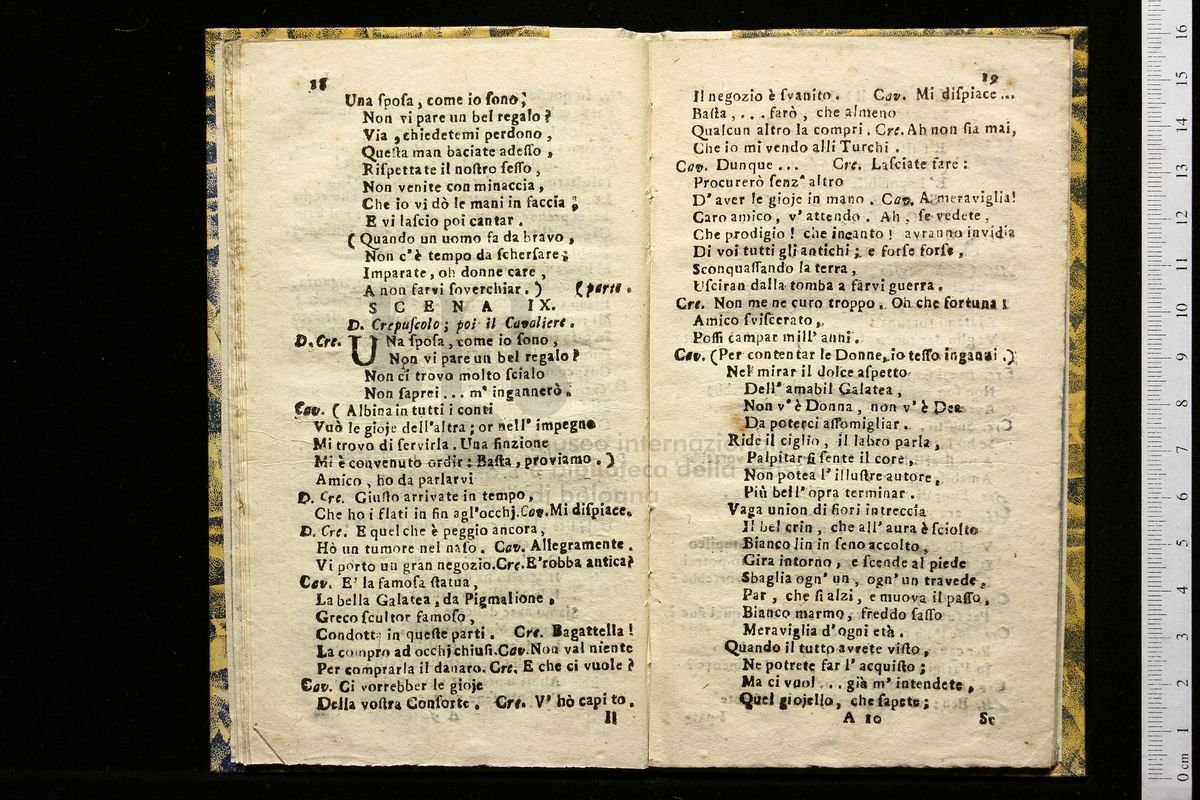 18
Una ſpoſa, come io ſono;
Non vi pare un bel regalo?
Via, chiedetemi perdono,
Queſta man baciate adeſſo,
Riſpettate il noſtro ſeſſo,
Non venite con minaccia,
Che io vi dò le mani in faccia;
E vi laſcio poi cantar.
(Quando un uomo fa da bravo,
Non c'è tempo da ſcherſare;
Imparate, oh donne care,
A non farvi ſoverchiar.) (parte.
SCENA IX.
D. Crepuſcolo; poi il Cavaliere.
D. Cre. UNa ſpoſa, come io ſono,
Non vi pare un bel regalo?
Non ci trovo molto ſcialo
Non ſaprei... m' ingannerò.
Cav. (Albina in tutti i conti
Vuò le gioje dell'altra; or nell' impegno
Mi trovo di ſervirla. Una finzione
Mi è convenuto ordir: Baſta, proviamo.)
Amico, ho da parlarvi
D. Cre. Giuſto arrivate in tempo,
Che ho i flati in fin agl'occhj. Cav. Mi diſpiace.
D. Cre. E quel che è peggio ancora,
Hò un tumore nel naſo. Cav. Allegramente.
Vi porto un gran negozio. Cre. E' robba antica?
Cav. E' la famoſa ſtatua,
La bella Galatea, da Pigmalione,
Greco ſcultor famoſo,
Condotta in queſte parti. Cre. Bagattella!
La compro ad occhj chiuſi. Cav. Non val niente
Per comprarla il danaro. Cre. E che ci vuole?
Cav. Ci vorrebber le gioje
Della voſtra Conſorte. Cre. V' hò capito.
Il
19
Il negozio è ſvanito. Cav. Mi diſpiace...
Baſta,... farò, che almeno
Qualcun altro la compri. Cre. Ah non ſia mai,
Che io mi vendo alli Turchi.
Cav. Dunque... Cre. Laſciate fare:
Procurerò ſenz' altro
D' aver le gioje in mano. Cav. A meraviglia!
Caro amico, v' attendo. Ah, ſe vedete,
Che prodigio! che incanto! avranno invidia
Di voi tutti gli antichi; e forſe forſe,
Sconquaſſando la terra,
Uſciran dalla tomba a farvi guerra.
Cre. Non me ne curo troppo. Oh che fortuna!
Amico ſviſcerato,
Poſſi campar mill' anni.
Cav. (Per contentar le Donne, io teſſo inganni.)
Nel mirar il dolce aſpetto
Dell' amabil Galatea,
Non v' è Donna, non v' è Dea
Da poterci aſſomigliar.
Ride il ciglio, il labro parla,
Palpitar ſi ſente il core,
Non potea l' illuſtre autore,
Più bell' opra terminar.
Vaga union di fiori intreccia
Il bel crin, che all' aura è ſciolto
Bianco lin in ſeno accolto,
Gira intorno, e ſcende al piede
Sbaglia ogn' un, ogn' un travede,
Par, che ſi alzi, e muova il paſſo,
Bianco marmo, freddo ſaſſo
Meraviglia d' ogni età.
Quando il tutto avrete viſto,
Ne potrete far l' acquiſto;
Ma ci vuol... già m' intendete,
Quel giojello, che ſapete;
A 10 Se